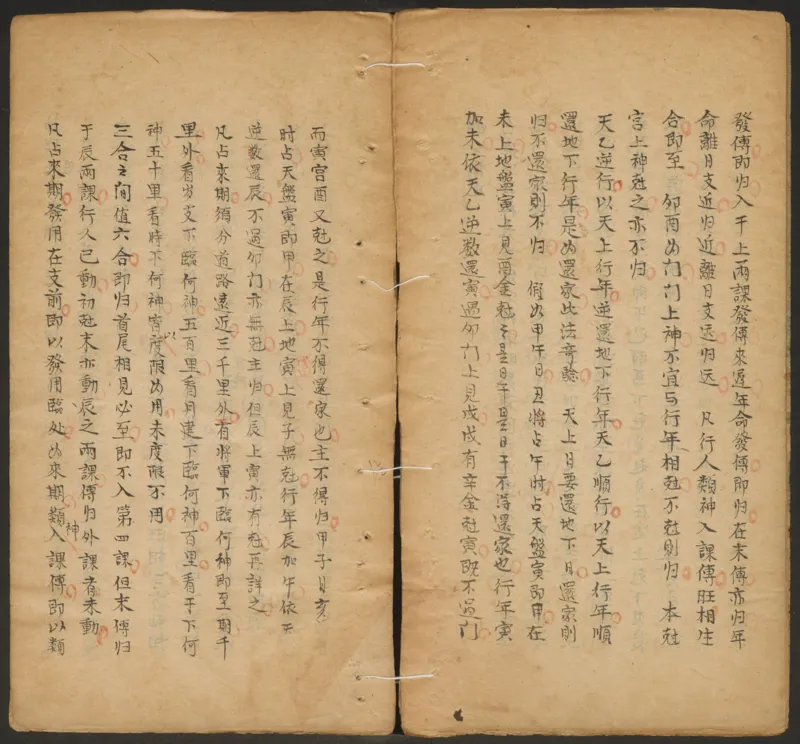 發傳即归入干上兩課發傳來過年命發傳即归在末傳亦归年
命離日支近归近離日支远归远　凡行人類神入課傳旺相生
合即至　卯酉为门门上神不宜与行年相尅不尅则归　本尅
宫上神尅之亦不归
天乙逆行以天上行年逆還地下行年天乙順行以天上行年順
還地下行年是为還家此法奇驗　天上日要還地下日還家則
归不還家則不归　假如甲午日丑將占午时占天盤寅即甲在
未上地盤寅上見酉金尅之是日午是日干不得還家也行年寅
加未依天乙逆数還寅過卯门上見戌戌有辛金尅寅既不過门
而寅宫酉又尅之是行年不得還家也主不得归甲子日亥
时占天盤寅即甲在辰上地寅上見子無尅行年辰加午依天
逆数還辰不過卯门亦無尅主归但辰上寅亦有尅再詳之
凡占來期須分道路遠近三千里外看將軍下臨何神即至期千
里外看岁支下臨何神五百里看月建下臨何神百里看干下何
神五十里看時下何神寄度限以为用未度限不用
三合之间值六合即归首尾相見必至即不入第四課但末傳归
于辰兩課行人已動初尅末亦動辰之兩課傳归外課者未動
凡占來期發用在支前即以發用臨处为來期類神入課傳即以類